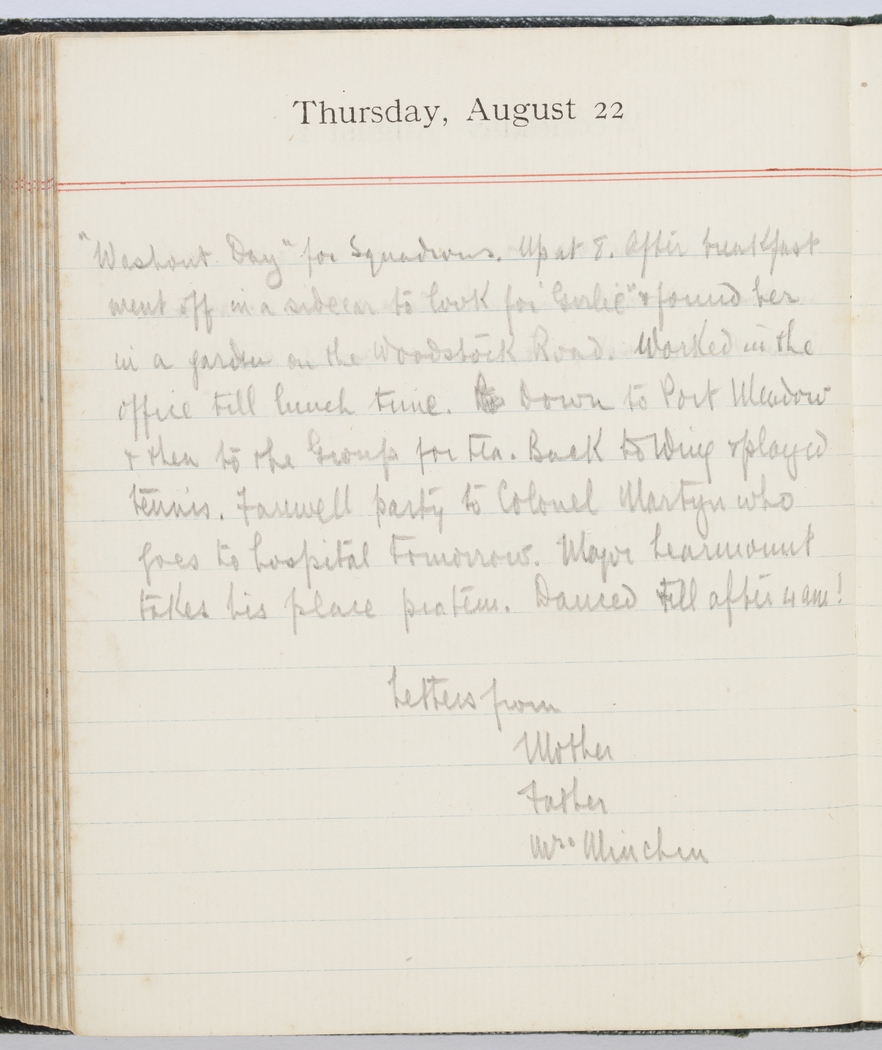 Thursday, August 22
"Washout Day" for Squadrons. Up at 8. After breakfast
went off in a sidecar to look for "Girlie" & found her
in a garden on the Woodstock Road. Worked in the
office till lunch time. Down to Port Meadow
& then to the Group for tea. Back to Wing & played
tennis. Farewell party to Colonel Martyn who
goes to hospital tomorrow. Major Learmount
takes his place protem. Danced till after 4 am!
Letters from
Mother
Father
Mrs. Minchin